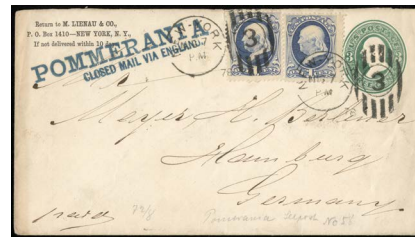 Return to M. LIENAU & CO.,
P. O. Box 1410—NEW YORK, N. Y.,
If not delivered within 10 days.
POMMERANIA
CLOSED MAIL VIA ENGLAND.
YORK
PM
3
YORK
PM
3
Meyer H. Berliner
Hamburg
Germany
Pomerania
No 56